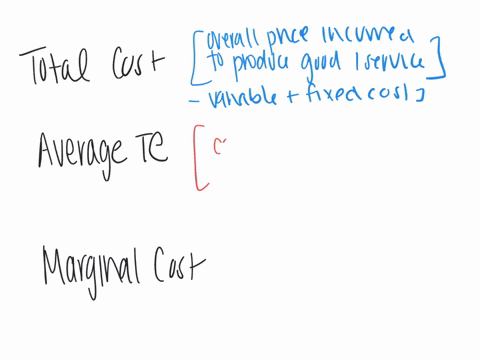 Total Cost [overall price incurred
to produce good / service]
- variable + fixed costs
Average TC [c
Marginal Cost